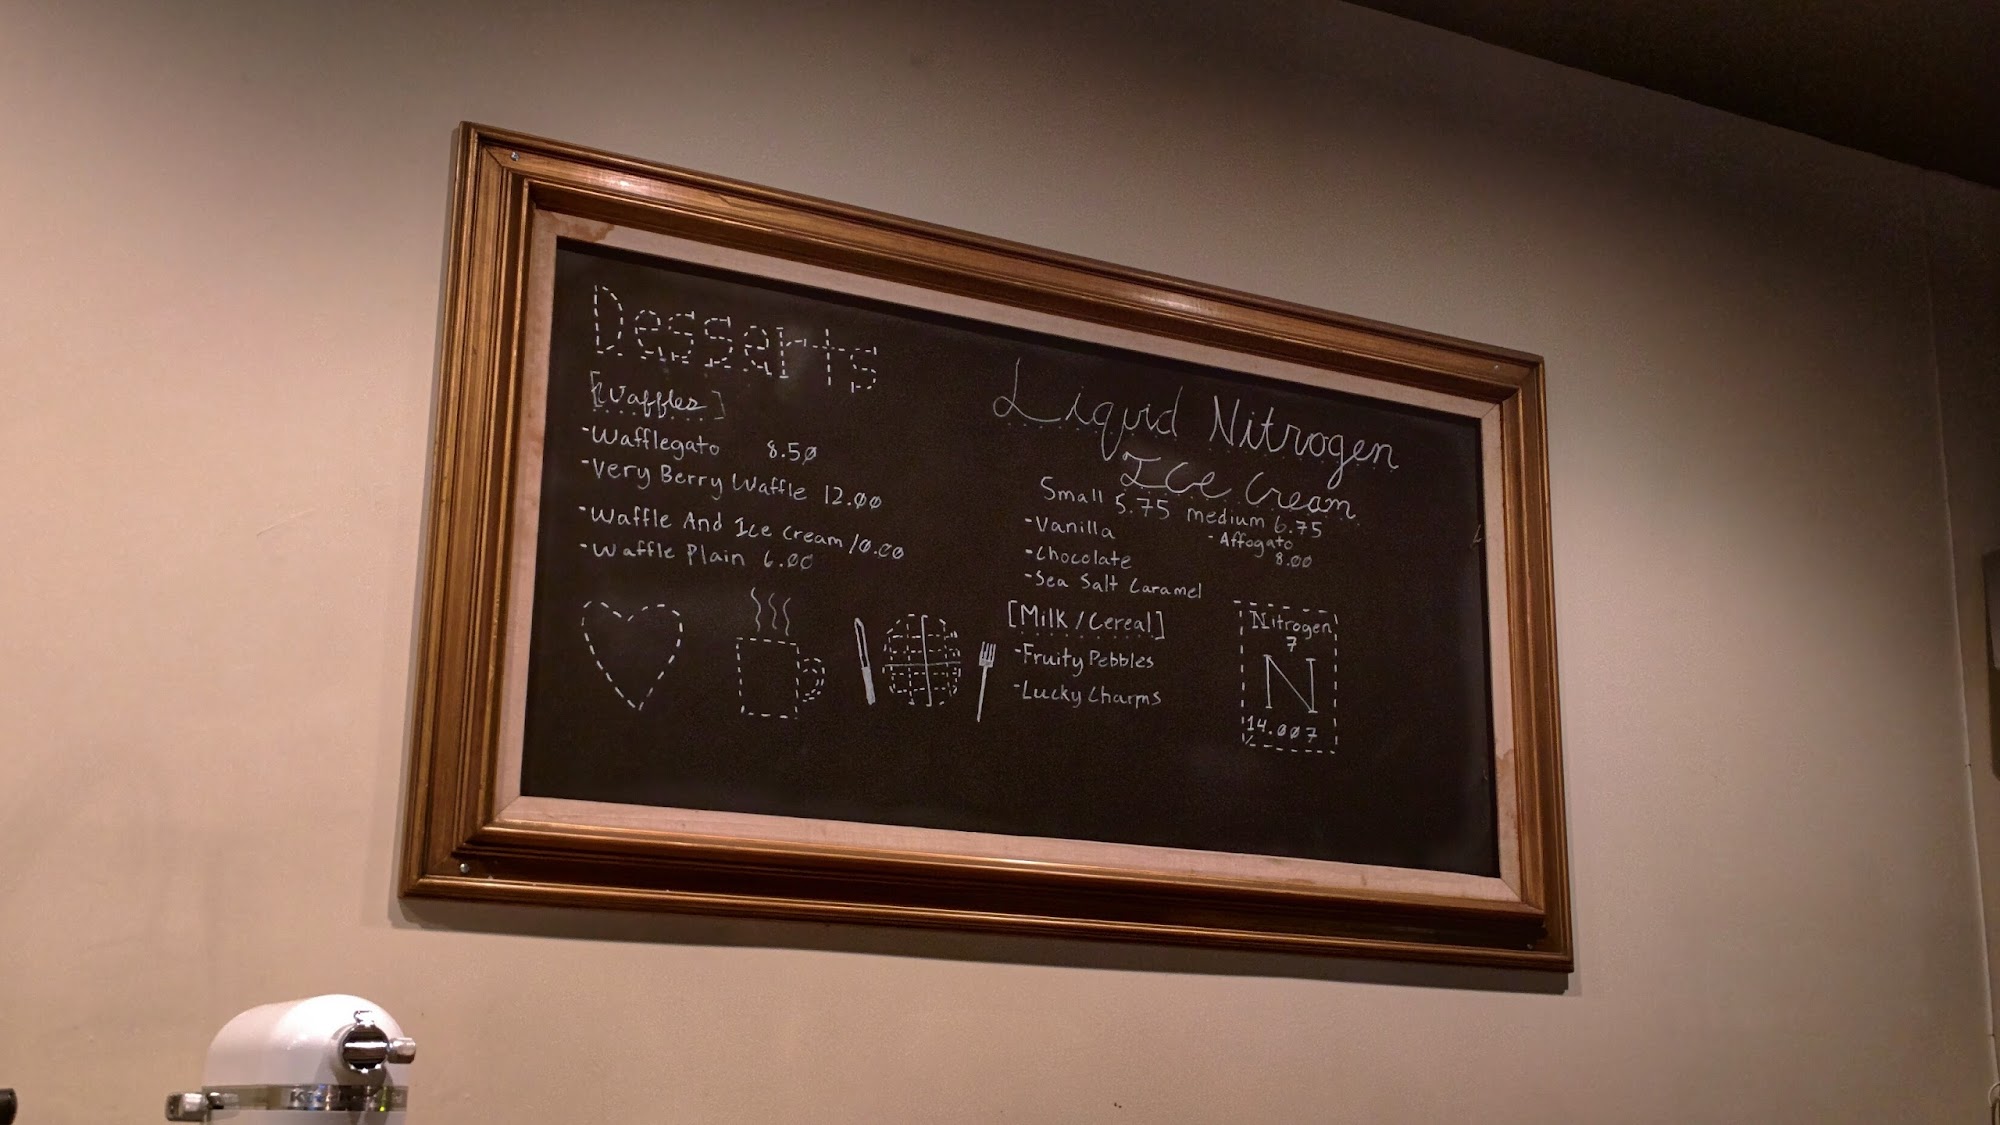 Desserts
[Waffles]
-Wafflegato 8.50
-Very Berry Waffle 12.00
-Waffle And Ice cream 10.00
-Waffle Plain 6.00
Liquid Nitrogen
Ice Cream
Small 5.75 medium 6.75
-Vanilla
-Affogato
8.00
-Chocolate
-Sea Salt Caramel
[Milk/Cereal]
-Fruity Pebbles
-Lucky Charms
Nitrogen
7
N
14.007